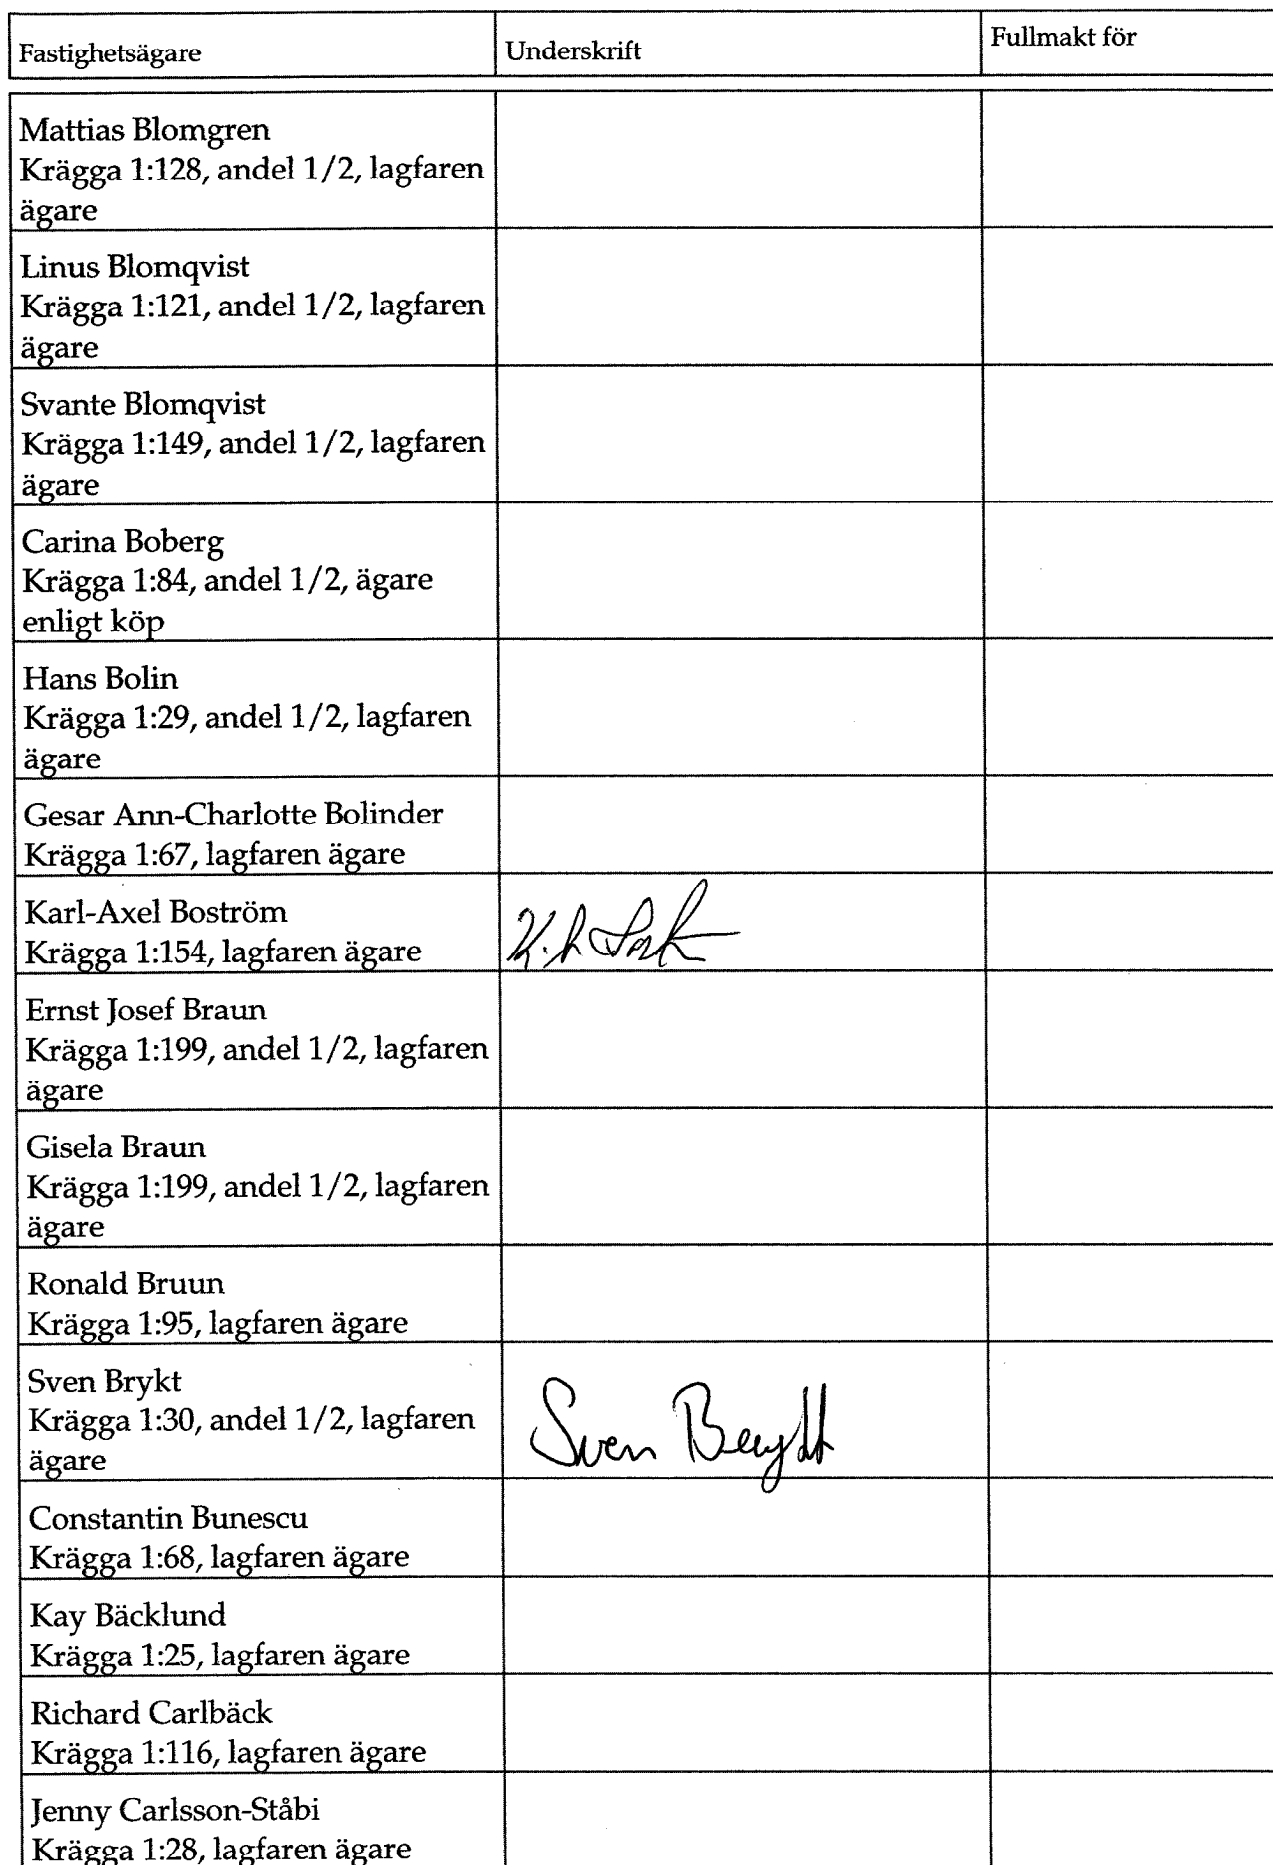 Fastighetsägare
Underskrift
Fullmakt för
Mattias Blomgren
Krägga 1:128, andel 1/2, lagfaren
ägare
Linus Blomqvist
Krägga 1:121, andel 1/2, lagfaren
ägare
Svante Blomqvist
Krägga 1:149, andel 1/2, lagfaren
ägare
Carina Boberg
Krägga 1:84, andel 1/2, ägare
enligt köp
Hans Bolin
Krägga 1:29, andel 1/2, lagfaren
ägare
Gesar Ann-Charlotte Bolinder
Krägga 1:67, lagfaren ägare
Karl-Axel Boström
Krägga 1:154, lagfaren ägare
Ernst Josef Braun
Krägga 1:199, andel 1/2, lagfaren
ägare
Gisela Braun
Krägga 1:199, andel 1/2, lagfaren
ägare
Ronald Bruun
Krägga 1:95, lagfaren ägare
Sven Brykt
Krägga 1:30, andel 1/2, lagfaren
ägare
Sven Brykt
Constantin Bunescu
Krägga 1:68, lagfaren ägare
Kay Bäcklund
Krägga 1:25, lagfaren ägare
Richard Carlbäck
Krägga 1:116, lagfaren ägare
Jenny Carlsson-Ståbi
Krägga 1:28, lagfaren ägare